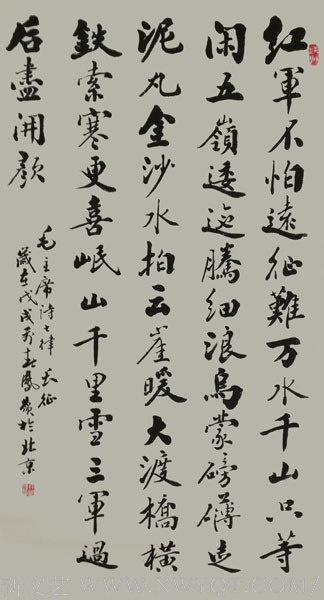 红軍不怕遠征難万水千山只等
闲五嶺逶迤騰细浪烏蒙磅礴走
泥丸金沙水拍云崖暖大渡橋横
鉄索寒更喜岷山千里雪三軍過
后盡開颜
毛主席诗七律长征
歲在戊戌於北京